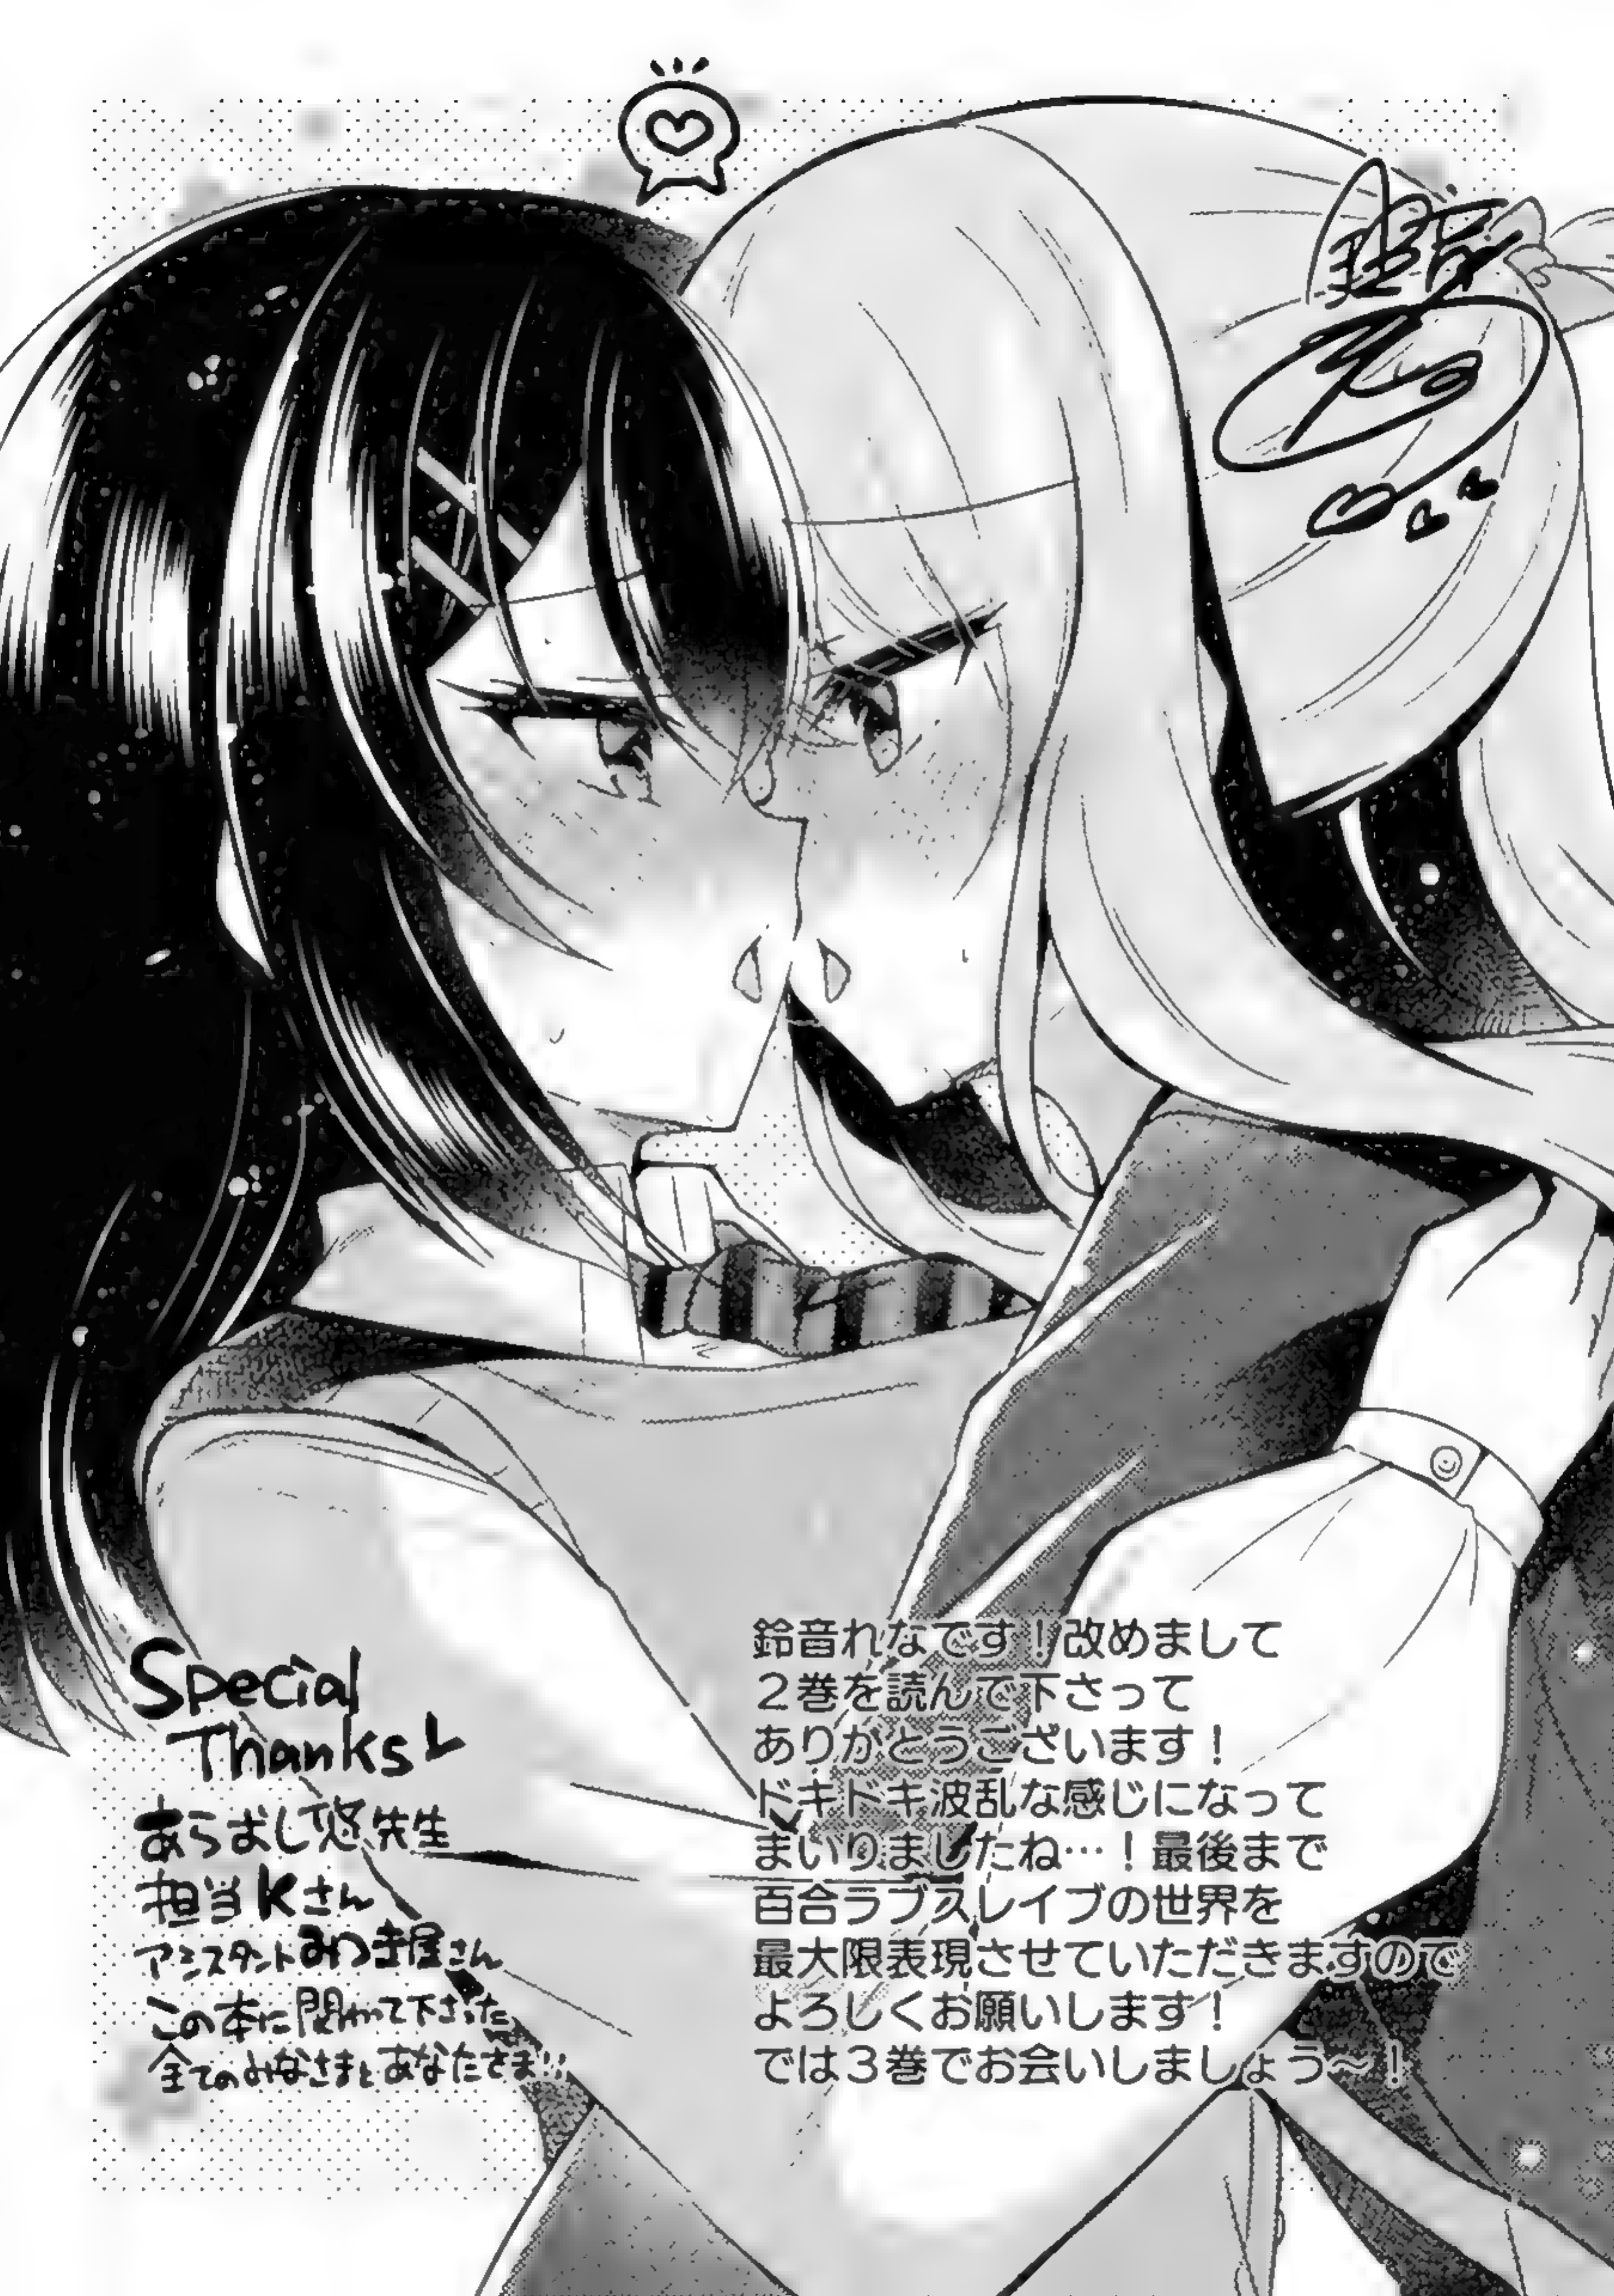 鈴音れなです！改めまして
２巻を読んで下さって
ありがとうございます！
ドキドキ波乱な感じになって
まいりましたね…！最後まで
百合ラブスレイブの世界を
最大限表現させていただきますので
よろしくお願いします！
では３巻でお会いしましょう～！
Special
Thanks
あらおし悠先生
担当Kさん
アシスタントみつき屋さん
この本に関わって下さった
全てのみなさまとあなたさま!!